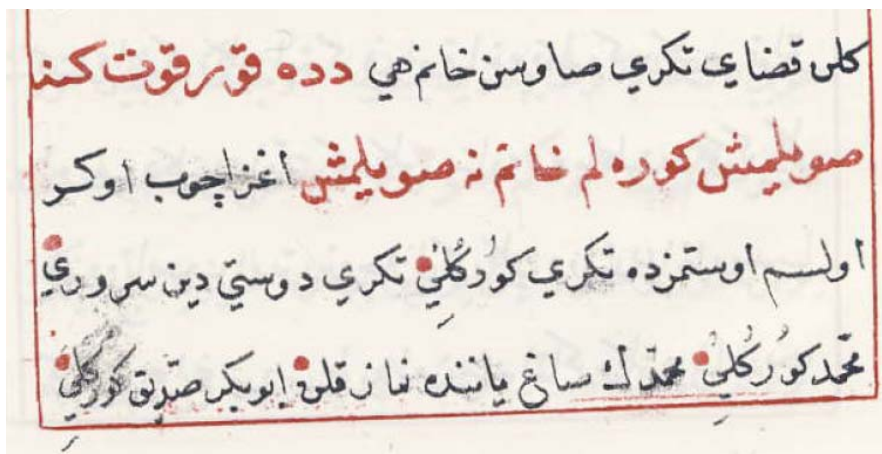 كلن قضايى تكرى صاوسن خانم هى دده قورقوت كنه
صويلمش كوره لم خانم نه صويلمش اغز اچوب اوكر
اولسم اوستمزده تكرى كوُركُلى تكرى دوستى دين سرورى
محمّد كوُركُلى محمّدك ساغ ياننده نماز قلن ابوبكر صدّيق كوُركُلى